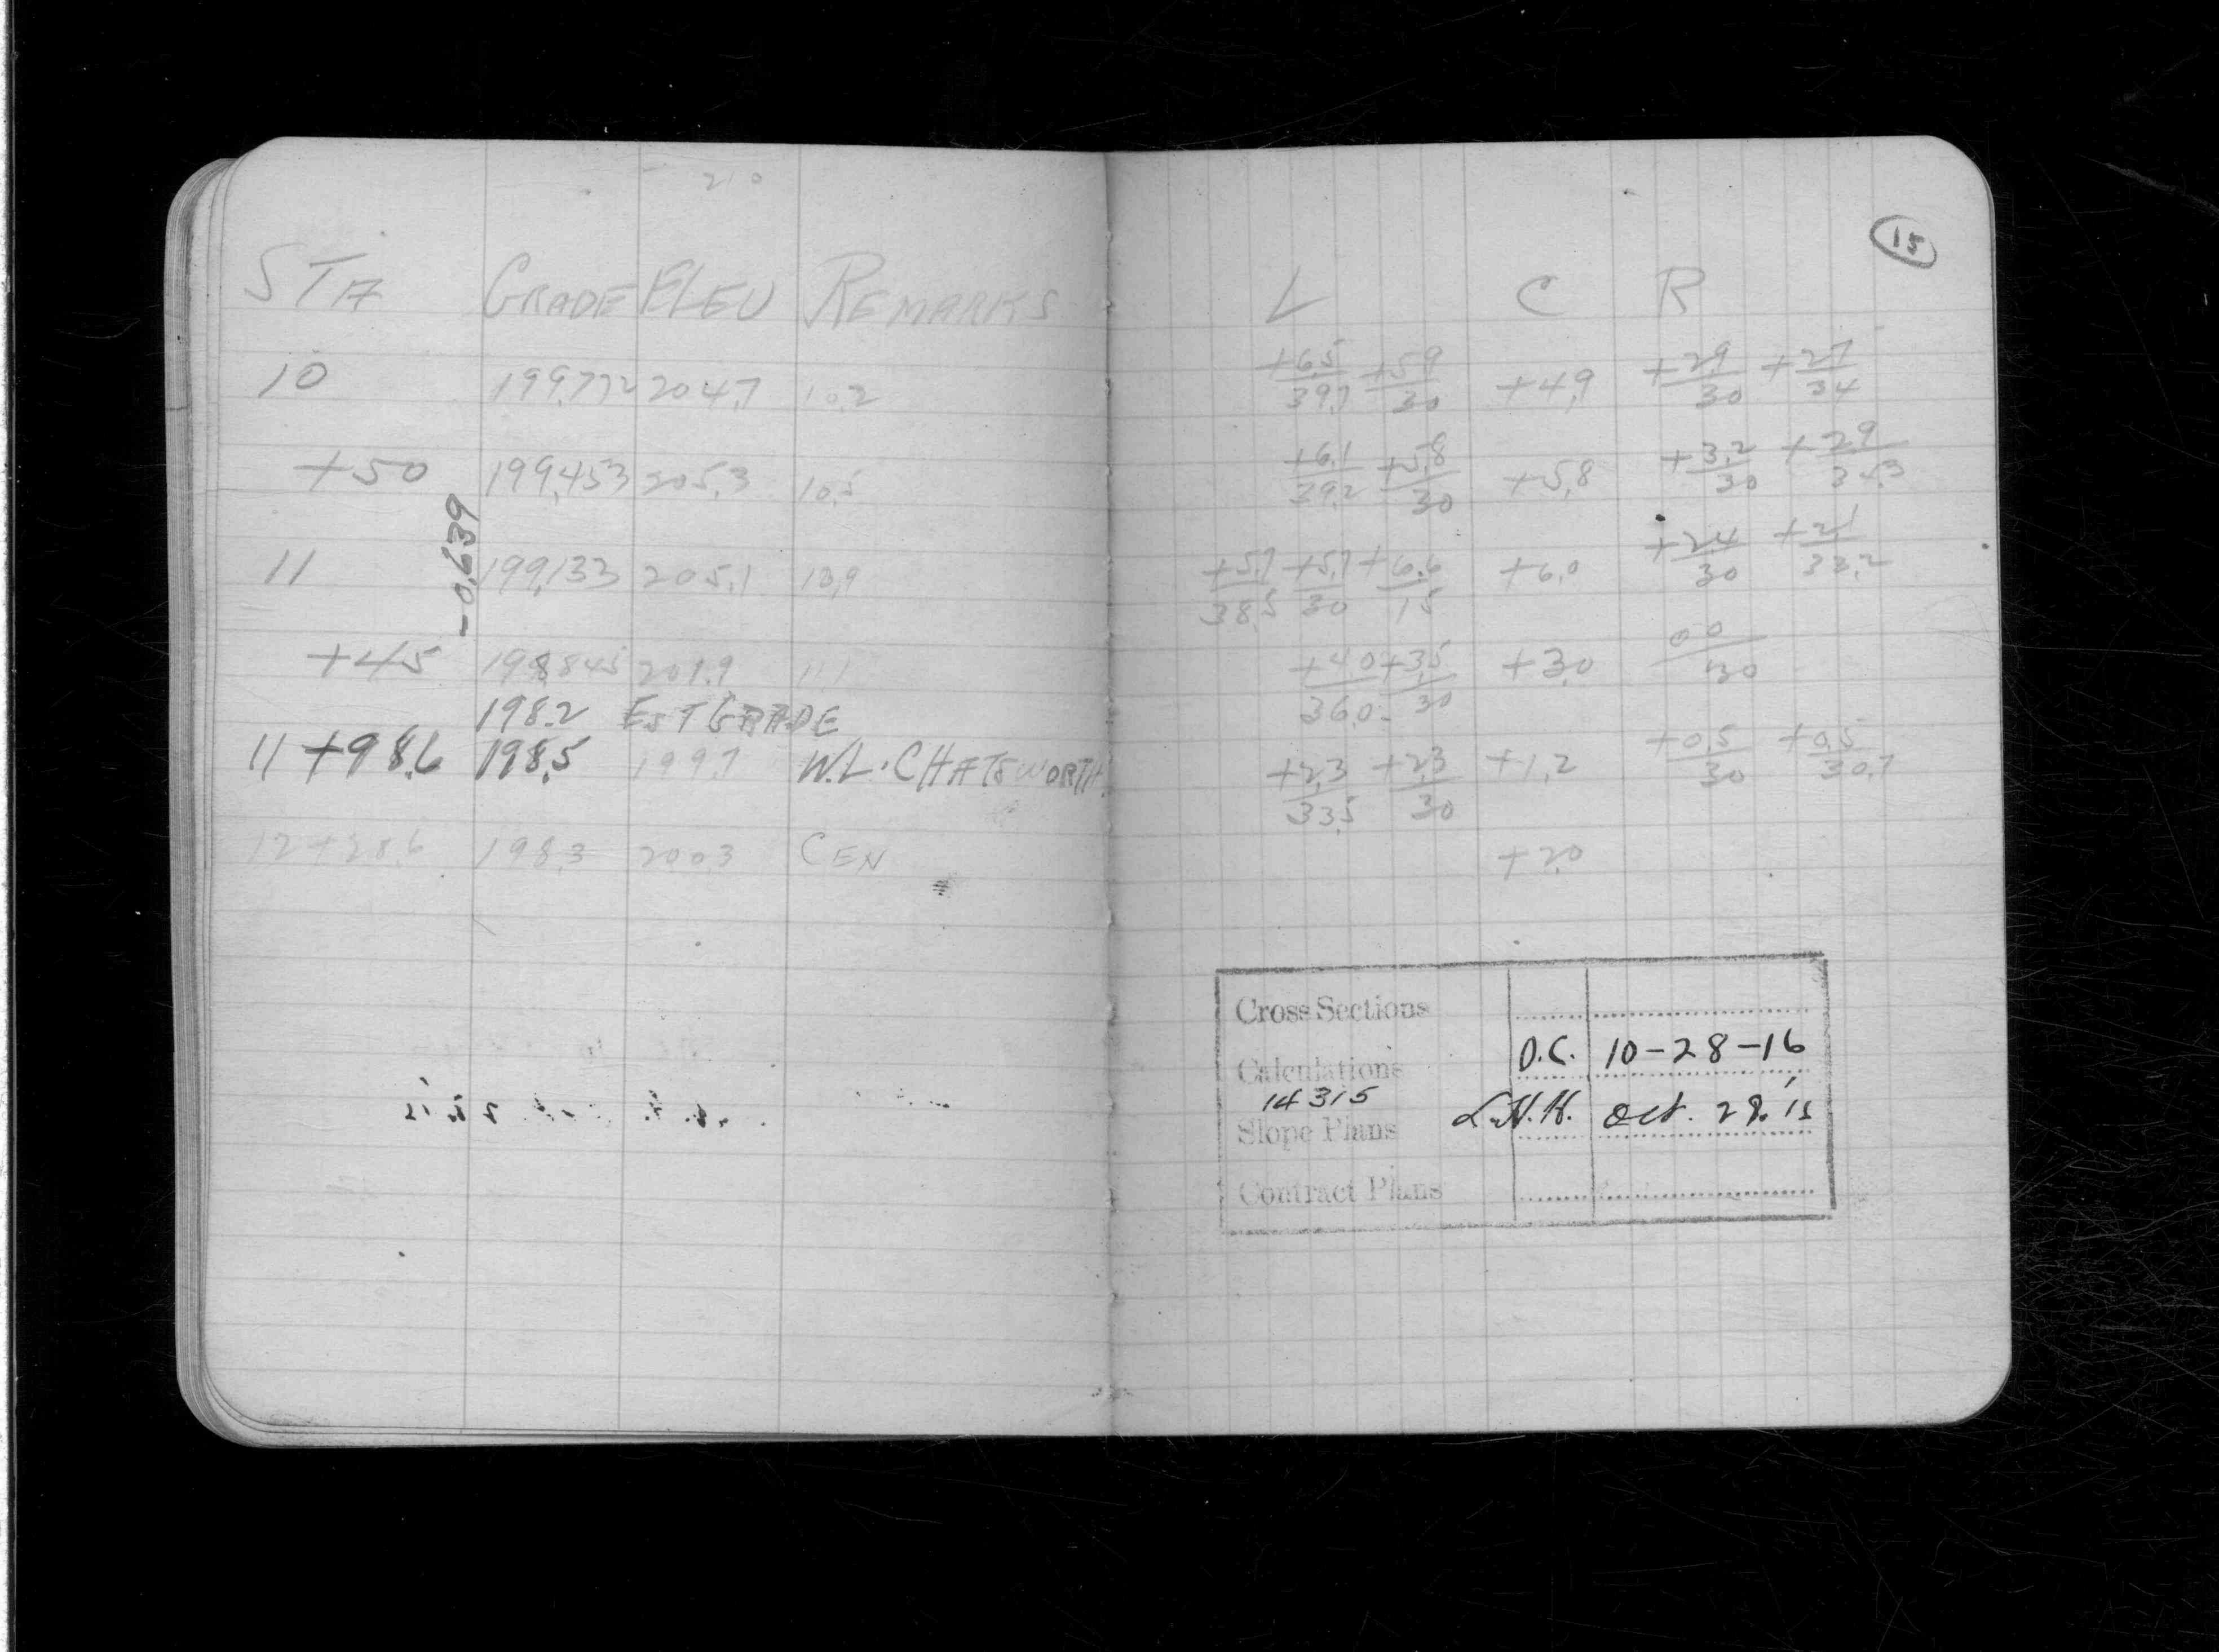 210
STA GRADE ELEV REMARKS
10 199.772 204.7 10.2
+50 199.453 205.3 10.5
-0.639
11 199.133 205.1 10.9
+45 198.845 201.9 11.1
198.2 EST GRADE
11+98.6 198.5 199.7 W.L. CHATSWORTH
12+28.6 198.3 200.3 CEN
15
L C R
+6.5/39.7 +5.9/30 +4.9 +2.9/30 +2.7/34
+6.1/39.2 +5.8/30 +5.8 +3.2/30 +2.9/35.3
+5.7/38.5 +5.7/30 +6.6/15 +6.0 +2.4/30 +2.1/33.2
+4.0/36.0 +3.5/30 +3.0 0.0/30
+2.3/33.5 +2.3/30 +1.2 +0.5/30 +0.5/30.7
+2.0
Cross Sections
Calculations O.C. 10-28-16
14315
Slope Plans L.H.H. Oct. 28,'15
Contract Plans